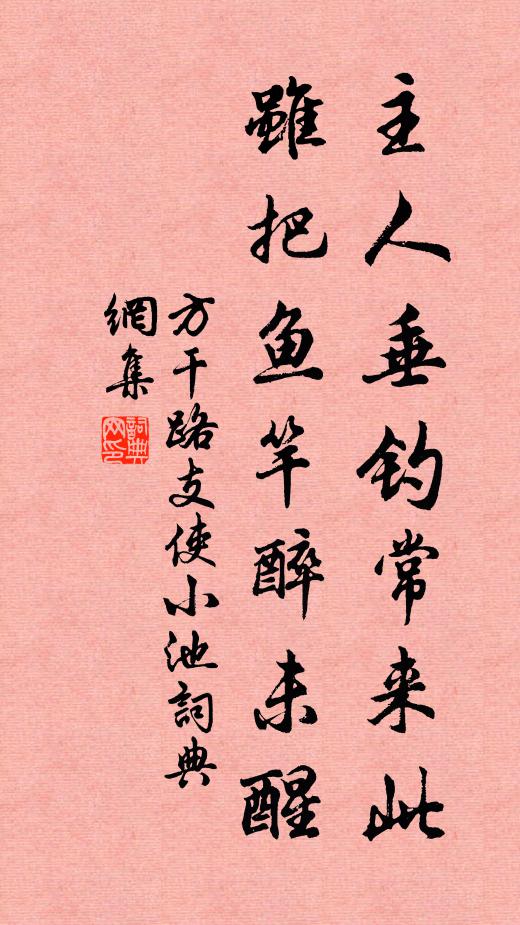 主人垂钓常来此
雖把鱼竿醉未醒
方干路支使小池詞典
網集
詞典
网印